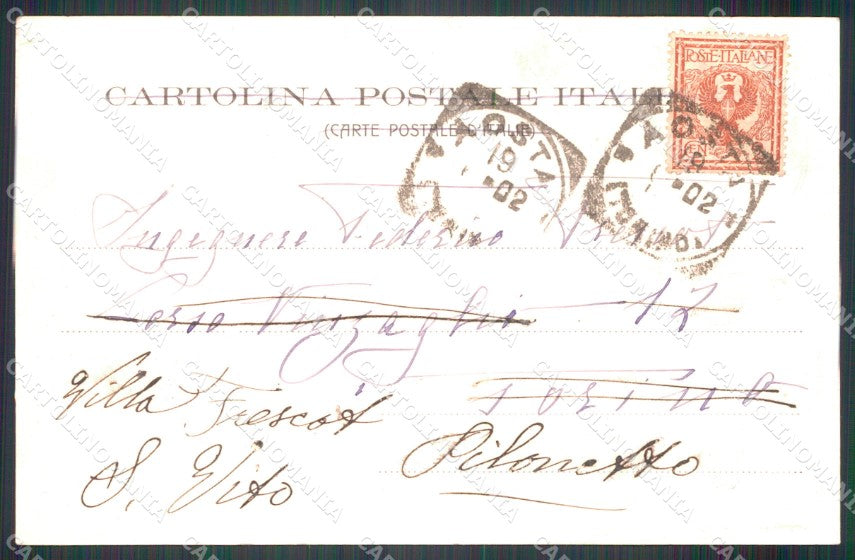 POSTE·ITALIANE
CARTOLINA POSTALE ITALI
(CARTE POSTALE D'ITALIE)
AOSTA
19
02
AOSTA
19
02
(TORINO)
Ingegnere Federico
Corso Vinzaglio 12
Torino
Villa Frescot
S. Vito
Pilonetto
CARTOLINOMANIA